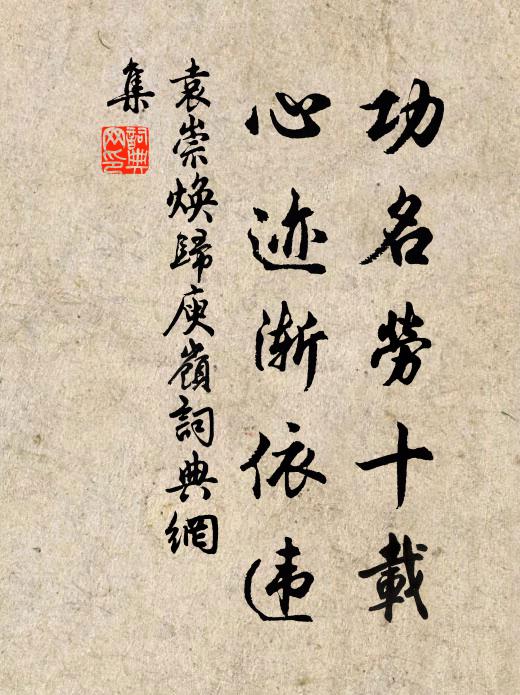 功名勞十載
心迹渐依违
袁崇焕歸庾嶺詞典網
集
詞典网印